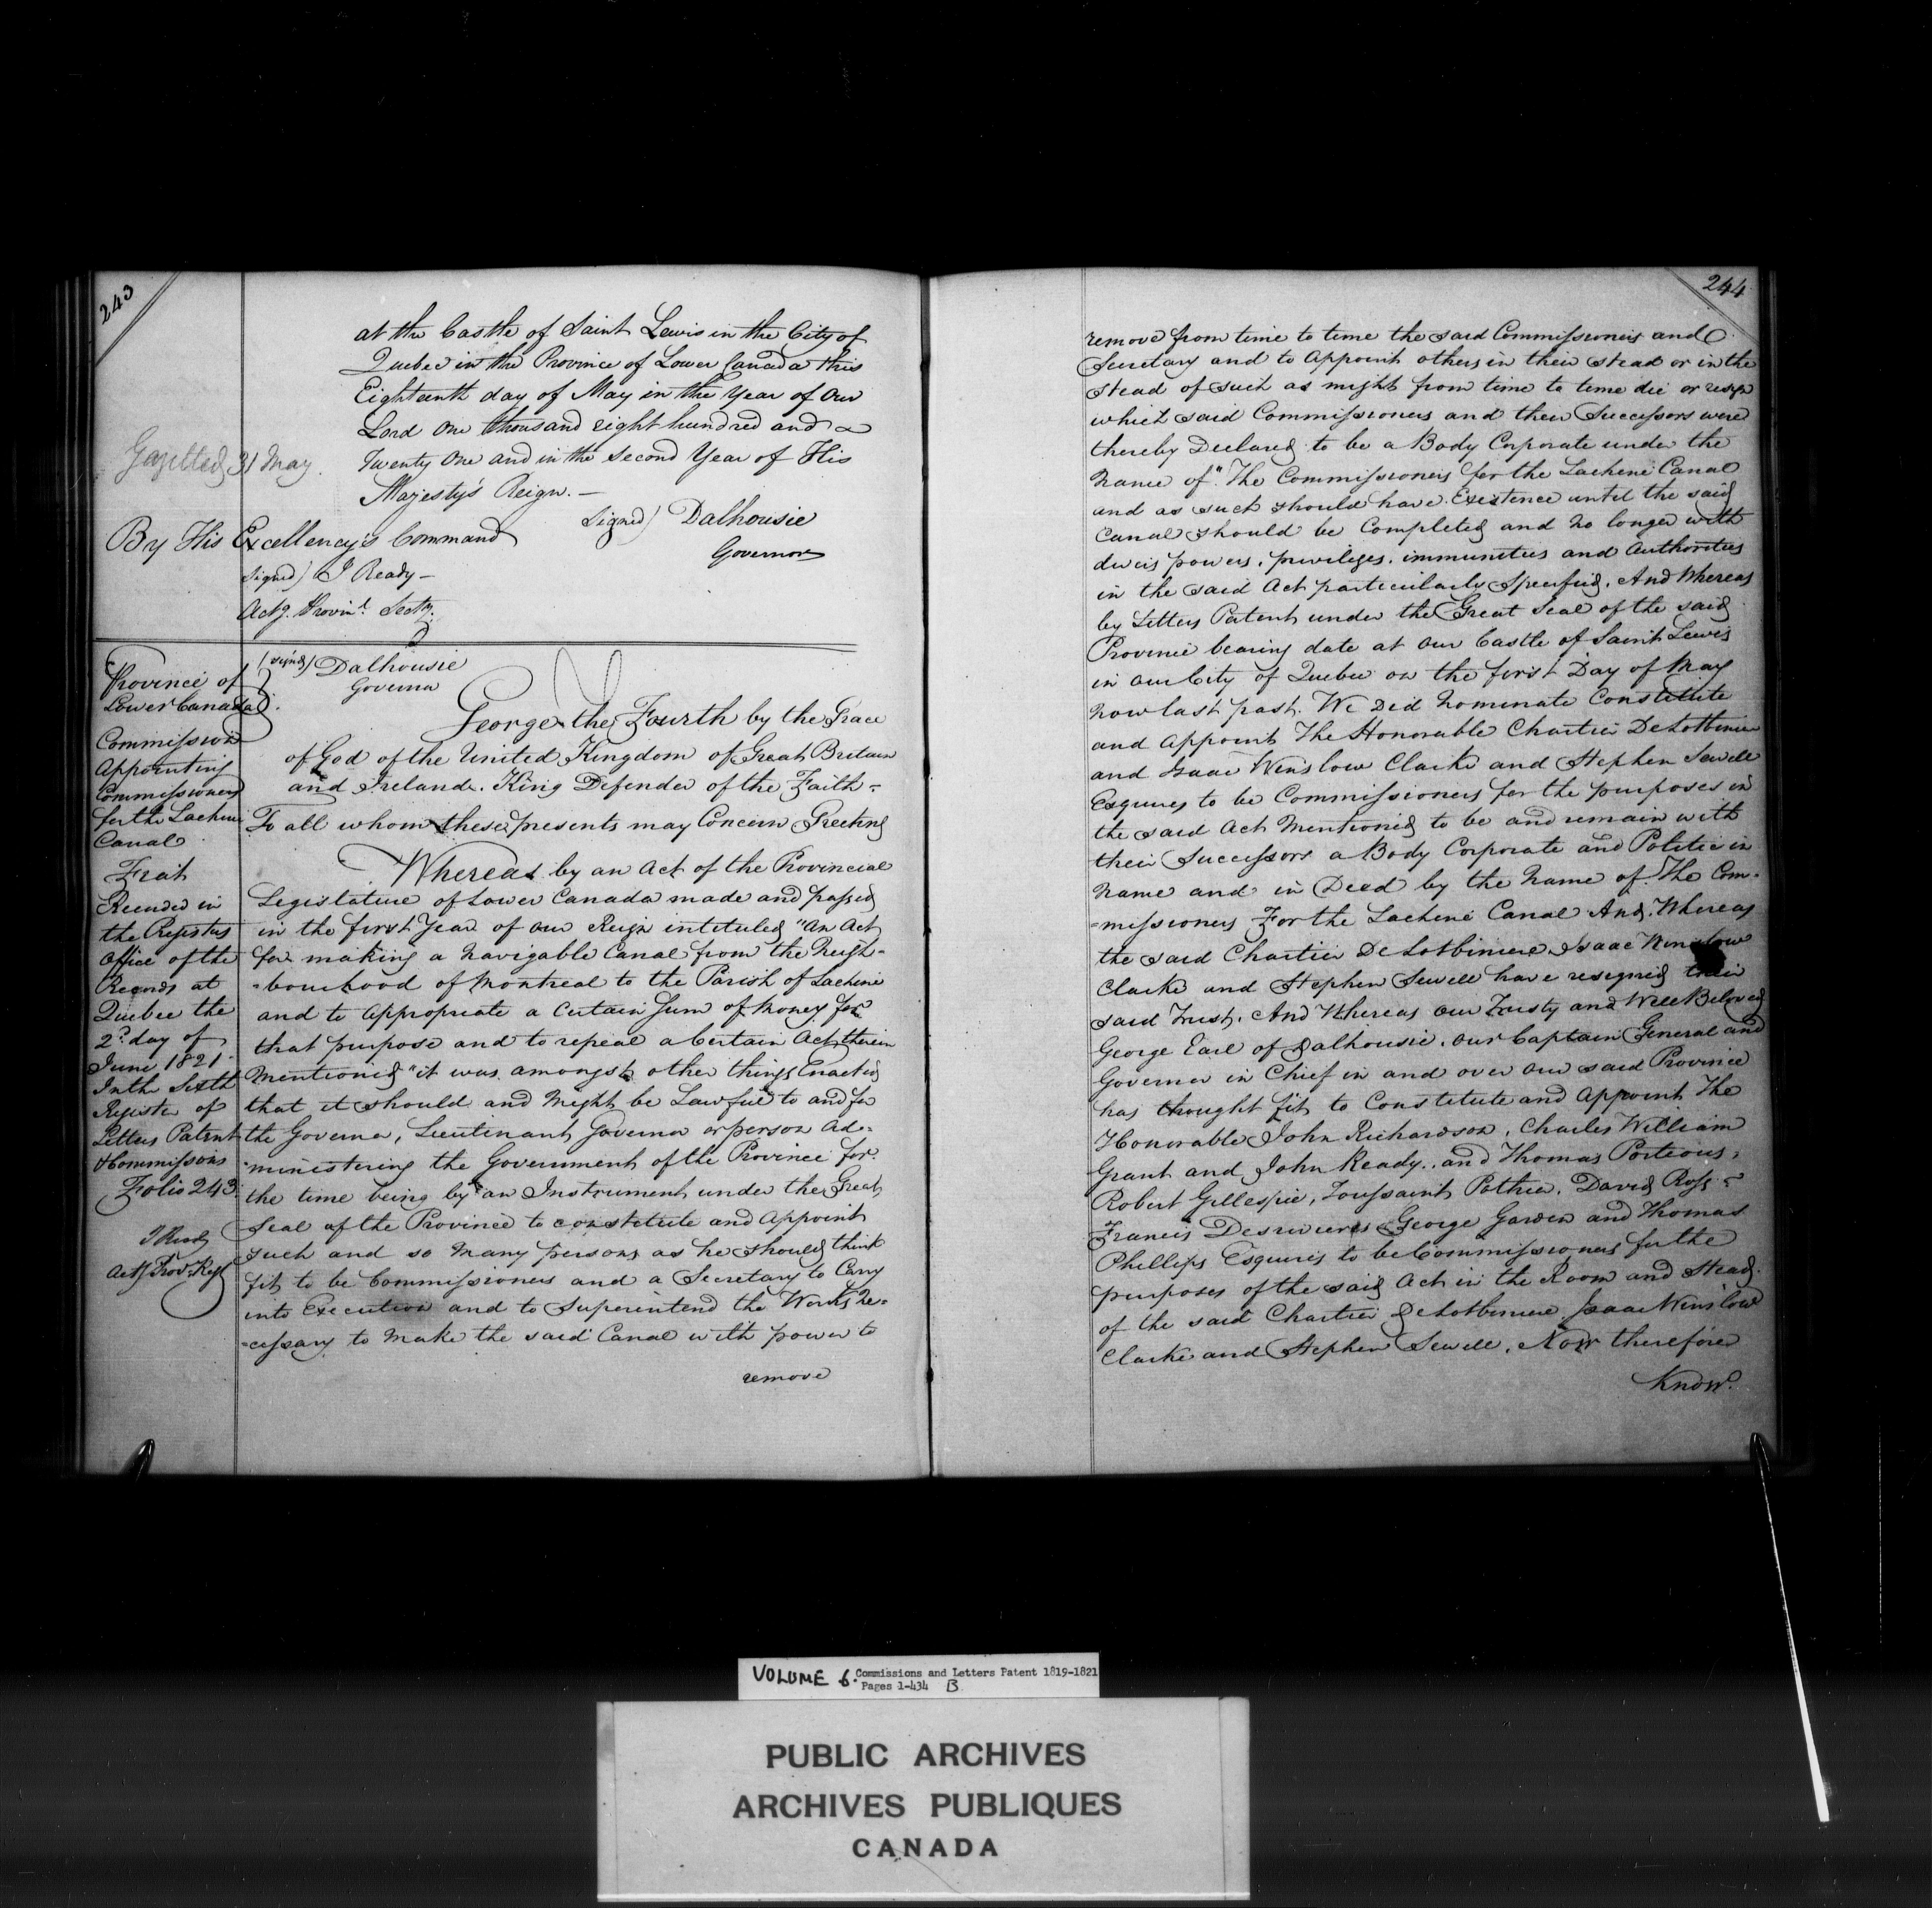 243
at the Castle of Saint Lewis in the City of
Quebec in the Province of Lower Canada this
Eighteenth day of May in the Year of Our
Lord One thousand eight hundred and
Twenty One and in the Second Year of His
Majesty's Reign. —
Gazetted 31 May.
Signed) Dalhousie
Governor
By His Excellency's Command
Signed) J Ready —
Actg. Provinl. Secty.
Province of
Lower Canada
(signd) Dalhousie
Governor
Commission
Appointing
Commissioners
for the Lachine
Canal
Fiat
Recorded in
the Registers
Office of the
Records at
Quebec the
2d. day of
June 1821
In the Sixth
Register of
Letters Patent
& Commissions
Folio 243
J Ready
Actg Prov. Regr
George the Fourth by the Grace
of God of the United Kingdom of Great Britain
and Ireland. King Defender of the Faith =
To all whom these presents may Concern Greeting
Whereas by an Act of the Provincial
Legislature of Lower Canada made and passed
in the first Year of our Reign intituled "An Act
for making a Navigable Canal from the Neigh-
=bourhood of Montreal to the Parish of Lachine
and to Appropriate a Certain Sum of Money for
that purpose and to repeal a Certain Act therein
Mentioned" it was amongst other things Enacted
that it should and might be Lawful to and for
the Governor, Lieutenant Governor or person ad=
ministering the Government of the Province for
the time being by an Instrument under the Great
Seal of the Province to constitute and Appoint
such and so Many persons as he should think
fit to be Commissioners and a Secretary to Carry
into Execution and to Superintend the Works Ne=
=cessary to Make the said Canal with power to
remove
244
remove from time to time the said Commissioners and
Secretary and to Appoint others in their stead or in the
stead of such as might from time to time die or resign
which said Commissioners and their Successors were
thereby Declared to be a Body Corporate under the
Name of "The Commissioners for the Lachine Canal
and as such should have Existence until the said
Canal should be Completed and no longer with
divers powers, privileges, immunities and Authorities
in the said Act particularly Specified. And Whereas
by Letters Patent under the Great Seal of the said
Province bearing date at Our Castle of Saint Lewis
in our City of Quebec on the first Day of May
Now last past. We Did Nominate Constitute
and Appoint The Honorable Chartier DeLotbiniere
and Isaac Winslow Clarke and Stephen Sewell
Esquires to be Commissioners for the purposes in
the said Act Mentioned to be and remain with
their Successors a Body Corporate and Politic in
Name and in Deed by the Name of The Com-
=missioners For the Lachine Canal And Whereas
the said Chartier De Lotbiniere Isaac Winslow
Clarke and Stephen Sewell have resigned their
said Trust. And Whereas our Trusty and Well Beloved
George Earl of Dalhousie. our Captain General and
Governor in Chief in and over our said Province
has thought fit to Constitute and Appoint The
Honorable John Richardson, Charles William
Grant and John Ready, and Thomas Porteous,
Robert Gillespie, Toussaint Pothier, David Ross =
Francis Desrivieres George Garden and Thomas
Phillips Esquires to be Commissioners for the
purposes of the said Act in the Room and Stead
of the said Chartier DeLotbiniere Isaac Winslow
Clarke and Stephen Sewell. Now therefore
Know.
VOLUME 6. Commissions and Letters Patent 1819-1821
Pages 1-434 B
PUBLIC ARCHIVES
ARCHIVES PUBLIQUES
CANADA